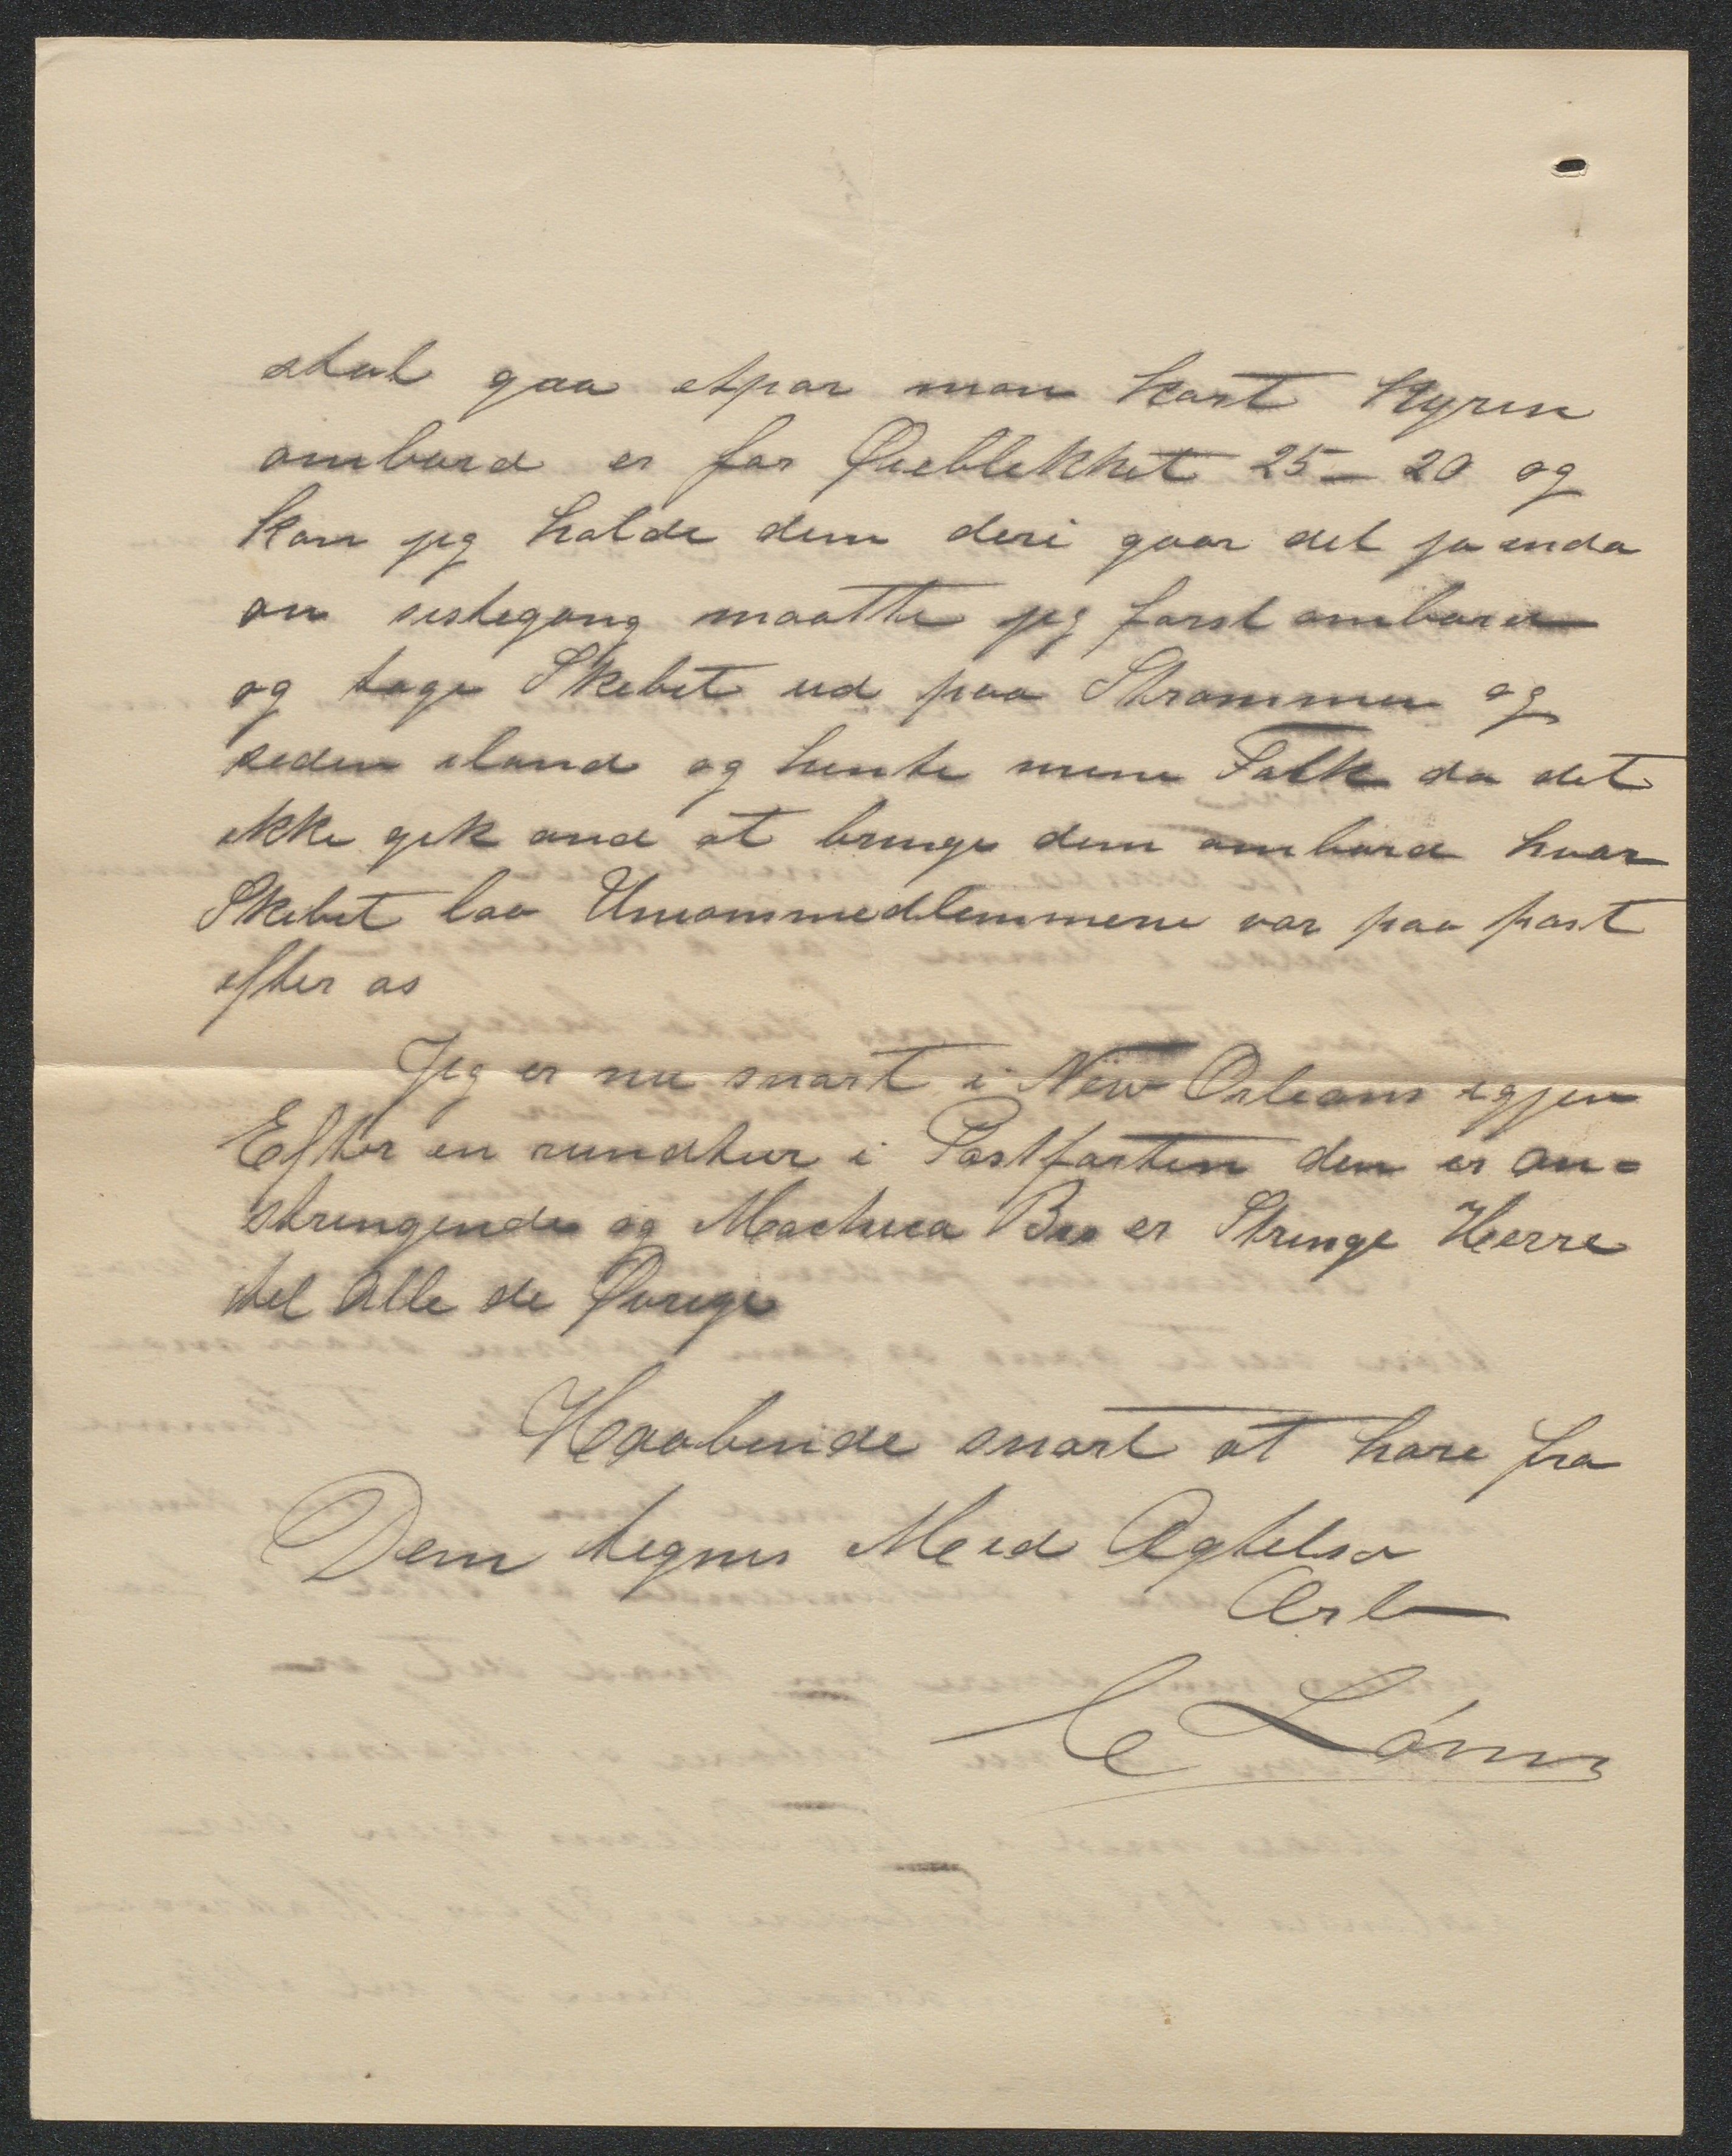 skul gaa etpar man kort Hyren
ombord er for Øieblekket 25 – 20 og
kan jeg holde dem deri gaar det jo enda
an sistegang maatte jeg forst ombord
og tage Skibet ud paa Strømmen og
seden iland og hente mine Folk da det
ikke gik and at bringe dem ombord hvor
Skibet laa Unionsmedlemmene var paa post
efter os
Jeg er nu snart i New Orleans igjen
Efter en rundtur i Postfarten den er an=
stringende og Macheca Bro er Stringe Herre
tel alle de Øvrige
Haabende snart at høre fra
Dem tegnes Med Agtelse
Ærb
C